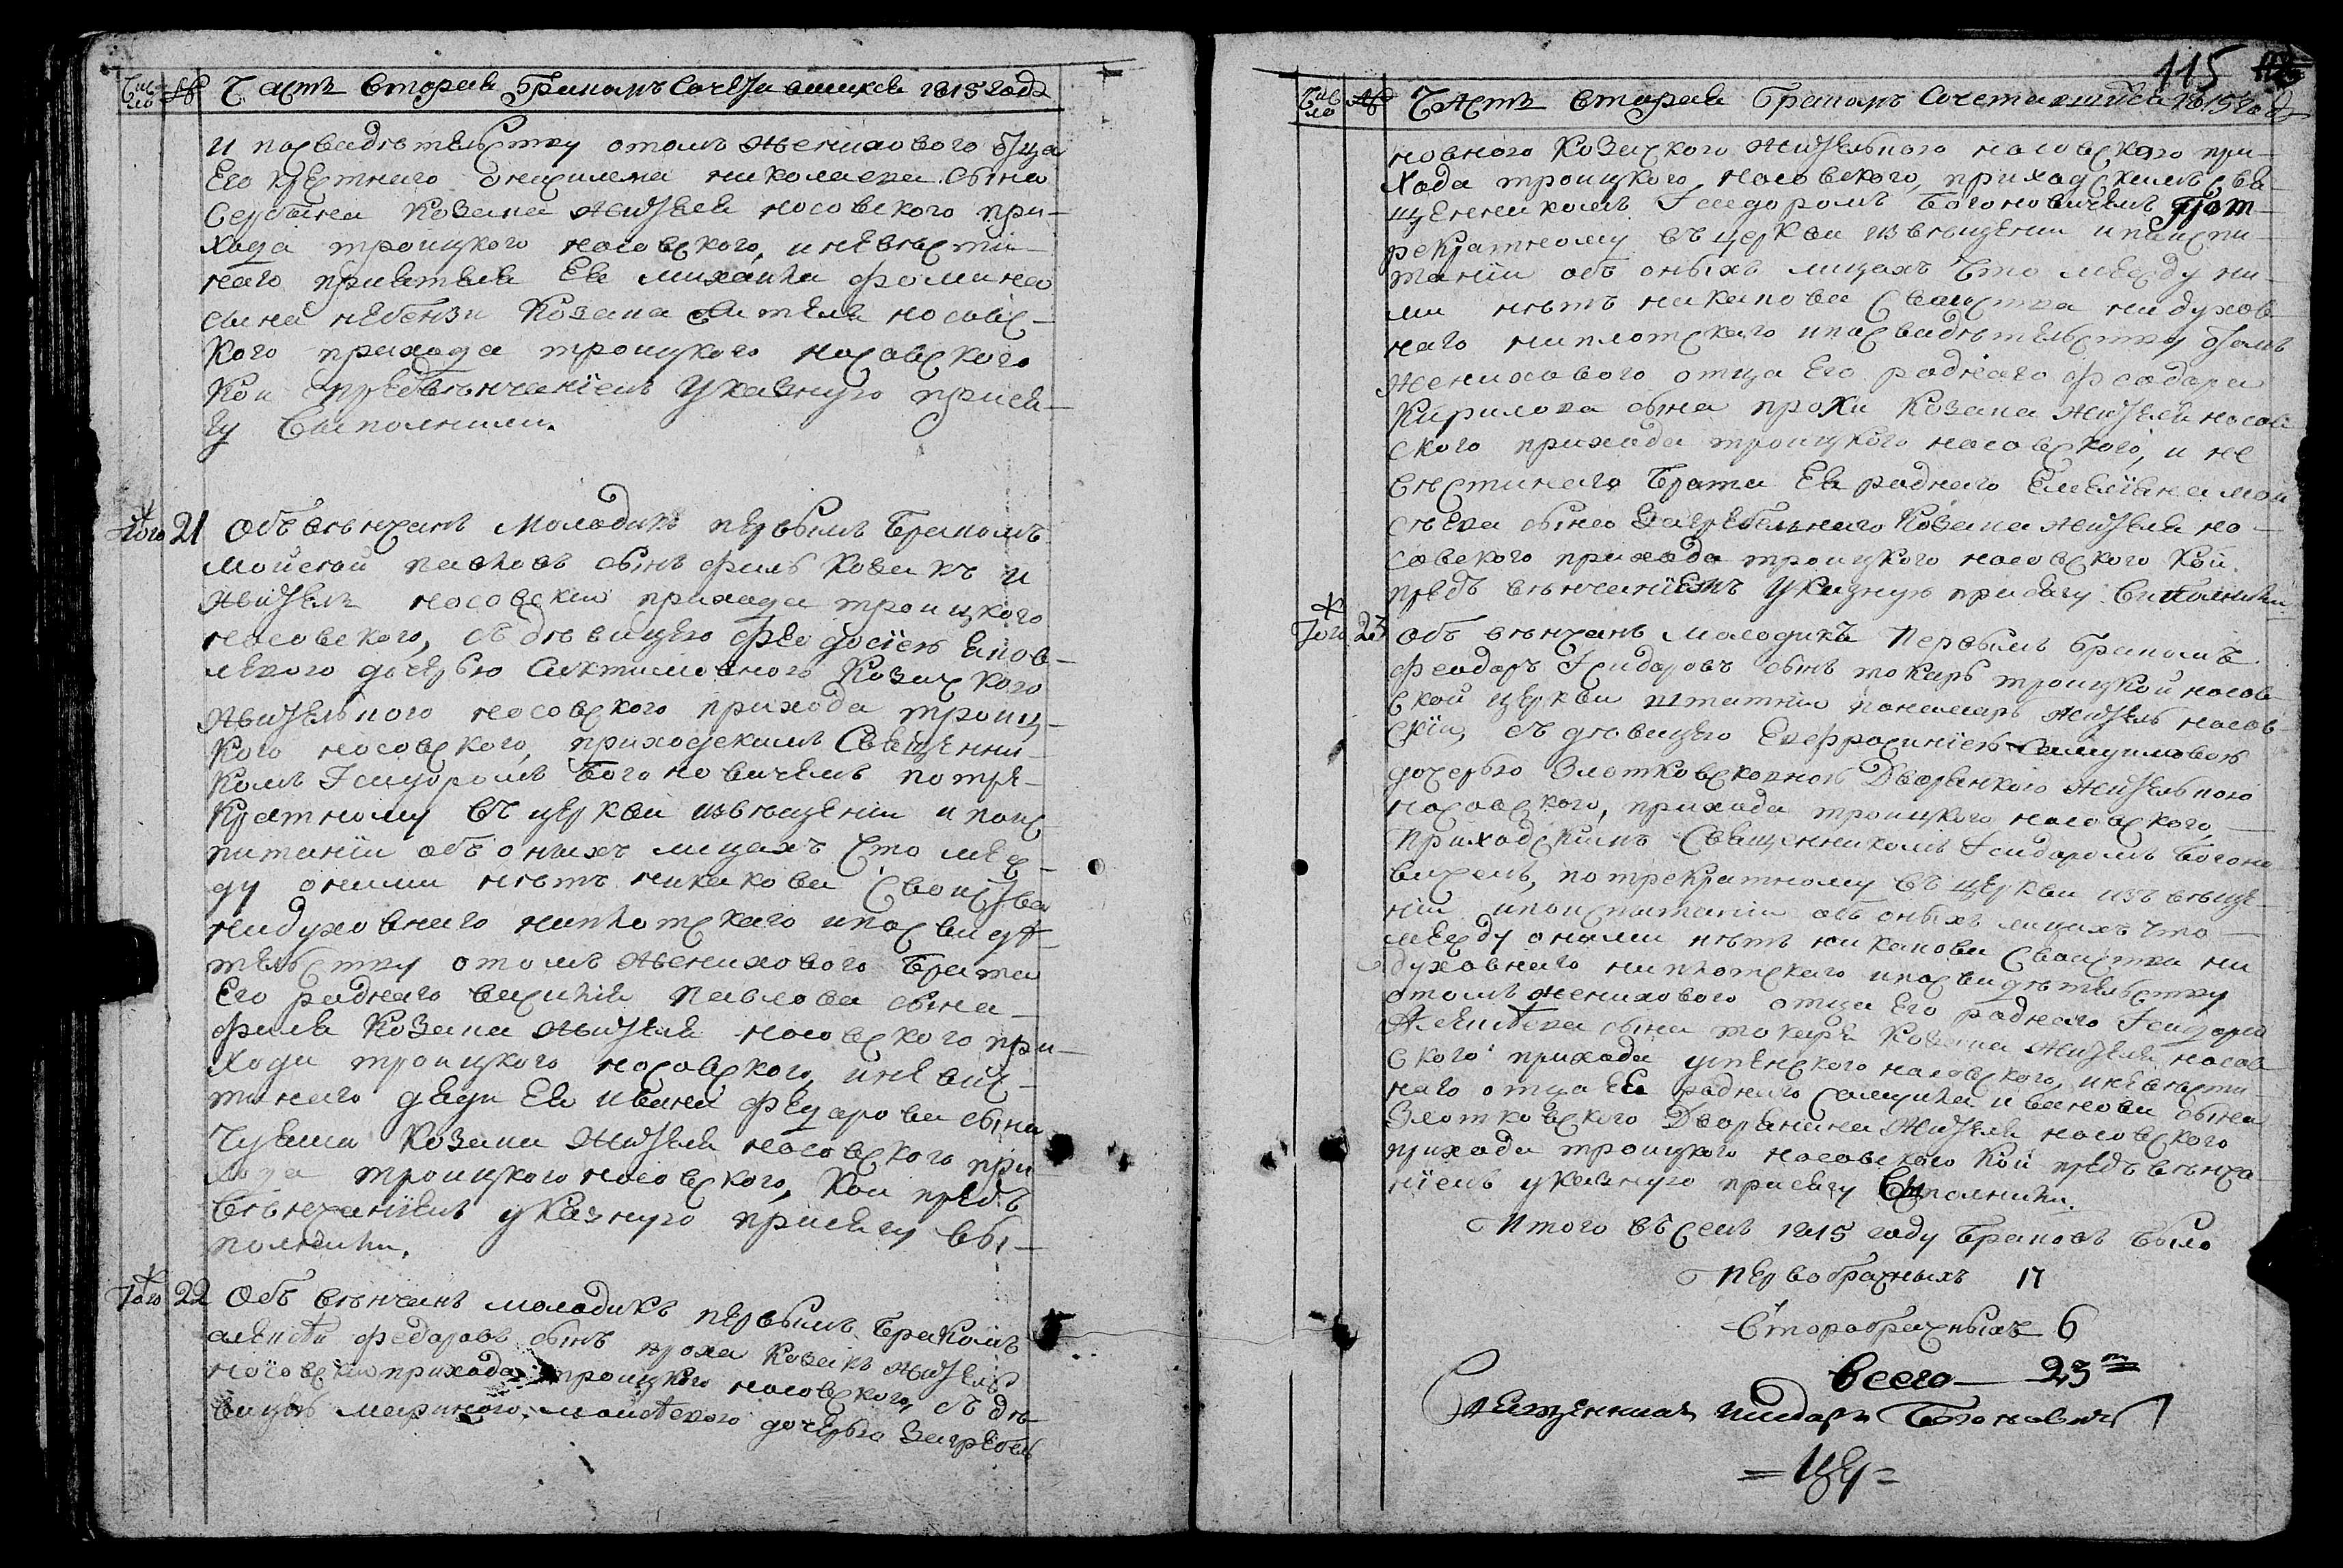 Число № Часть Вторая Бракомъ Сочетавшихся 1815 года
и посвидѣтельству отомъ женихового отца
Его крестного Онисилема николаева сына
Сербина козака жителя носовского при-
хода троицкого носовского, иневѣсти-
ного приятеля Ея михаила фомина
сына небензи козака жителя носовс-
кого прихода троицкого носовского
кои предвѣнчаніемъ указную прися-
гу выполнили.
Того 21 Объ вѣнчанъ молодикъ первымъ бракомъ
мойсей павловъ сынъ филь козакъ и
житель носовскій прихода троицкого
носовского, съ дѣвицею феодосіею яков-
левою дочерью козачкою
жительною носовского прихода троиц-
кого носовского, приходскимъ Священни-
комъ Ісидоромъ Богоновичемъ потре-
кратному въ церкви извѣщеніи и поис-
питаніи объ онихъ лицахъ что меж-
ду оними нѣтъ никакова свойства
нидуховного ниплотского ипосвидѣ-
тельству отомъ женихового брата
Его родного василія павлова сына
филя козака жителя носовского при-
хода троицкого носовского, иневѣс-
тиного дяди Ея ивана федорова сына
Чуяша козака жителя носовского при
хода троицкого носовского, кои предъ
вѣнчаніемъ указную присягу вы-
полнили.
Того 22 Объ вѣнчанъ молодикъ первымъ бракомъ
алексѣй федоровъ сынъ проха козакъ житель
носовскій прихода троицкого носовского, съ дѣ-
вицею мариною мойсѣевою дочерью Загребель
115
Число № Часть Вторая Бракомъ Сочетавшихся 1815 года
новною козачкою жительною носовского при-
хода троицкого носовского, приходскимъ свя-
щенникомъ Ісидоромъ Богоновичемъ потре-
рекратному въ церкви извѣщеніи ипоиспи-
таніи объ оныхъ лицахъ что между ни-
ми нѣтъ никакова свойства нидухов
ного ниплотского ипосвидѣтельству отомъ
женихового отца Его родного феодора
Кирилова сына прохи козака жителя носов
ского прихода троицкого носовского, и не
вѣстиного брата Ея родного Емеліяна мой
сѣева сына Загребельного козака жителя но-
совского прихода троицкого носовского кои
предъ вѣнчаніемъ указную присягу виполнили
Того 23 Объ вѣнчанъ молодикъ первымъ бракомъ
феодоръ Ісидоровъ сынъ токарь троицкой носов
ской церкви штатній пономарь житель носов-
скій, съ дѣвицею Евфросиніею Самуиловою
дочерью Злотковсковною Дворянкою жительною
носовского, прихода троицкого носовского,
приходскимъ Священникомъ Ісидоромъ Богоно
вичемъ, потрекратному въ церкви извѣще-
ніи ипоиспитаніи объ оныхъ лицахъ что
между оними нѣтъ никакова свойства ни
духовного ниплотского ипосвидѣтельству
отомъ женихового отца Его родного Ісидора
Алексѣева сына токаря козака жителя носов
ского прихода успенского носовского, иневѣсти
ного отца Ея родного Самуила иванова сына
Злотковского Дворянина жителя носовского
прихода троицкого носовского кои предъ вѣнча
ніемъ указную присягу выполнили.
Итого въ семъ 1815 году браковъ было
первобрачныхъ 17
второбрачныхъ 6
Всего — 23
Священникъ Исидоръ Богоновичъ